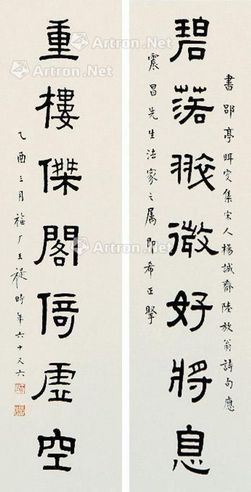 書郘亭眲叟集宋人楊誠齋陸放翁詩句應
震昌先生法家之屬即希正擘
碧落翠微好將息
重樓傑閣倚虛空
乙酉三月福厂王褆時年六十又六
Artron.Net
Artron.Net
Artron.Net
Artron.Net